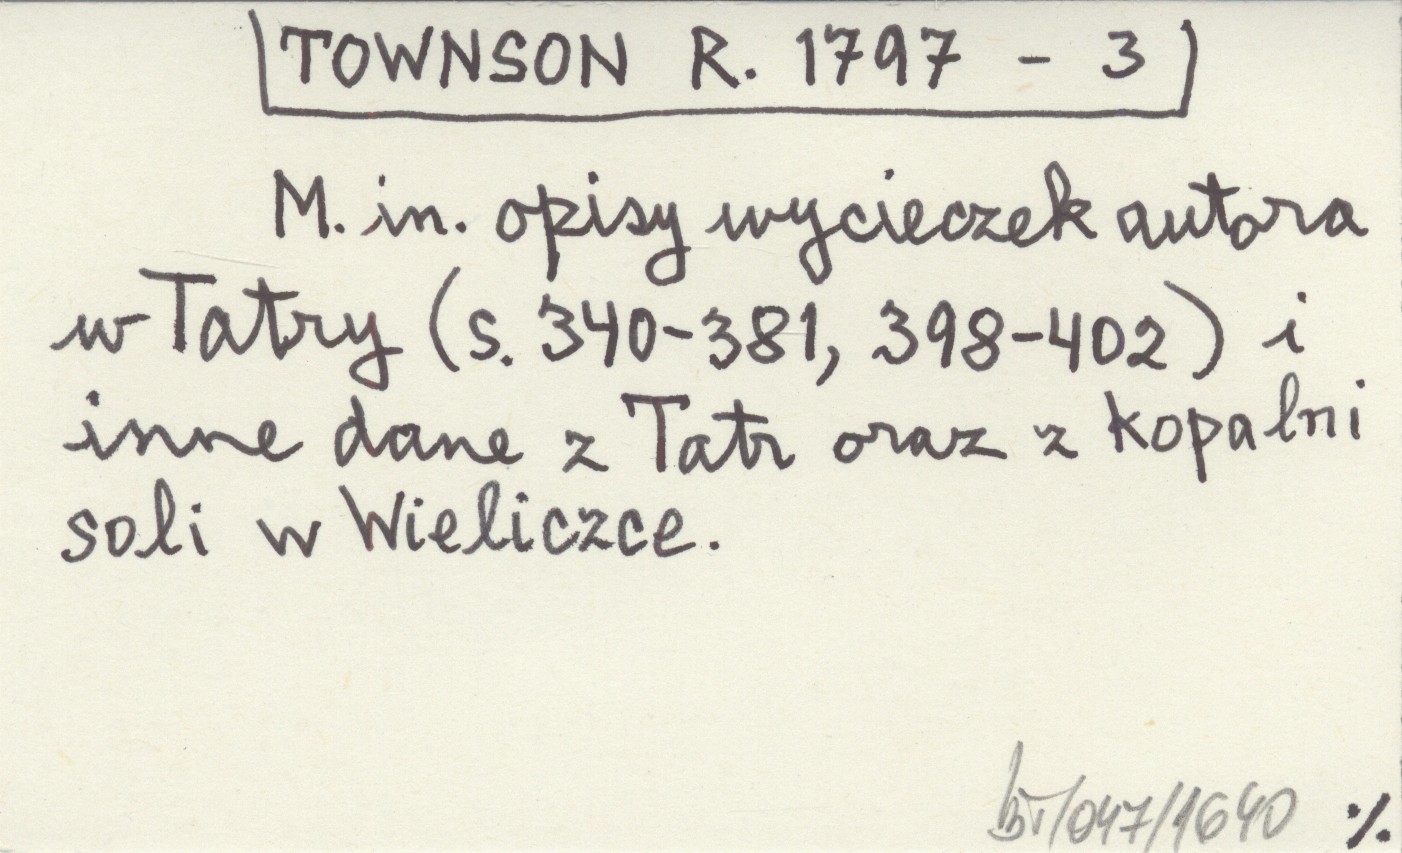 TOWNSON R. 1797 - 3
M. in. opisy wycieczek autora
w Tatry (s. 340-381, 398-402) i
inne dane z Tatr oraz z kopalni
soli w Wieliczce.
/047/1640 ./.